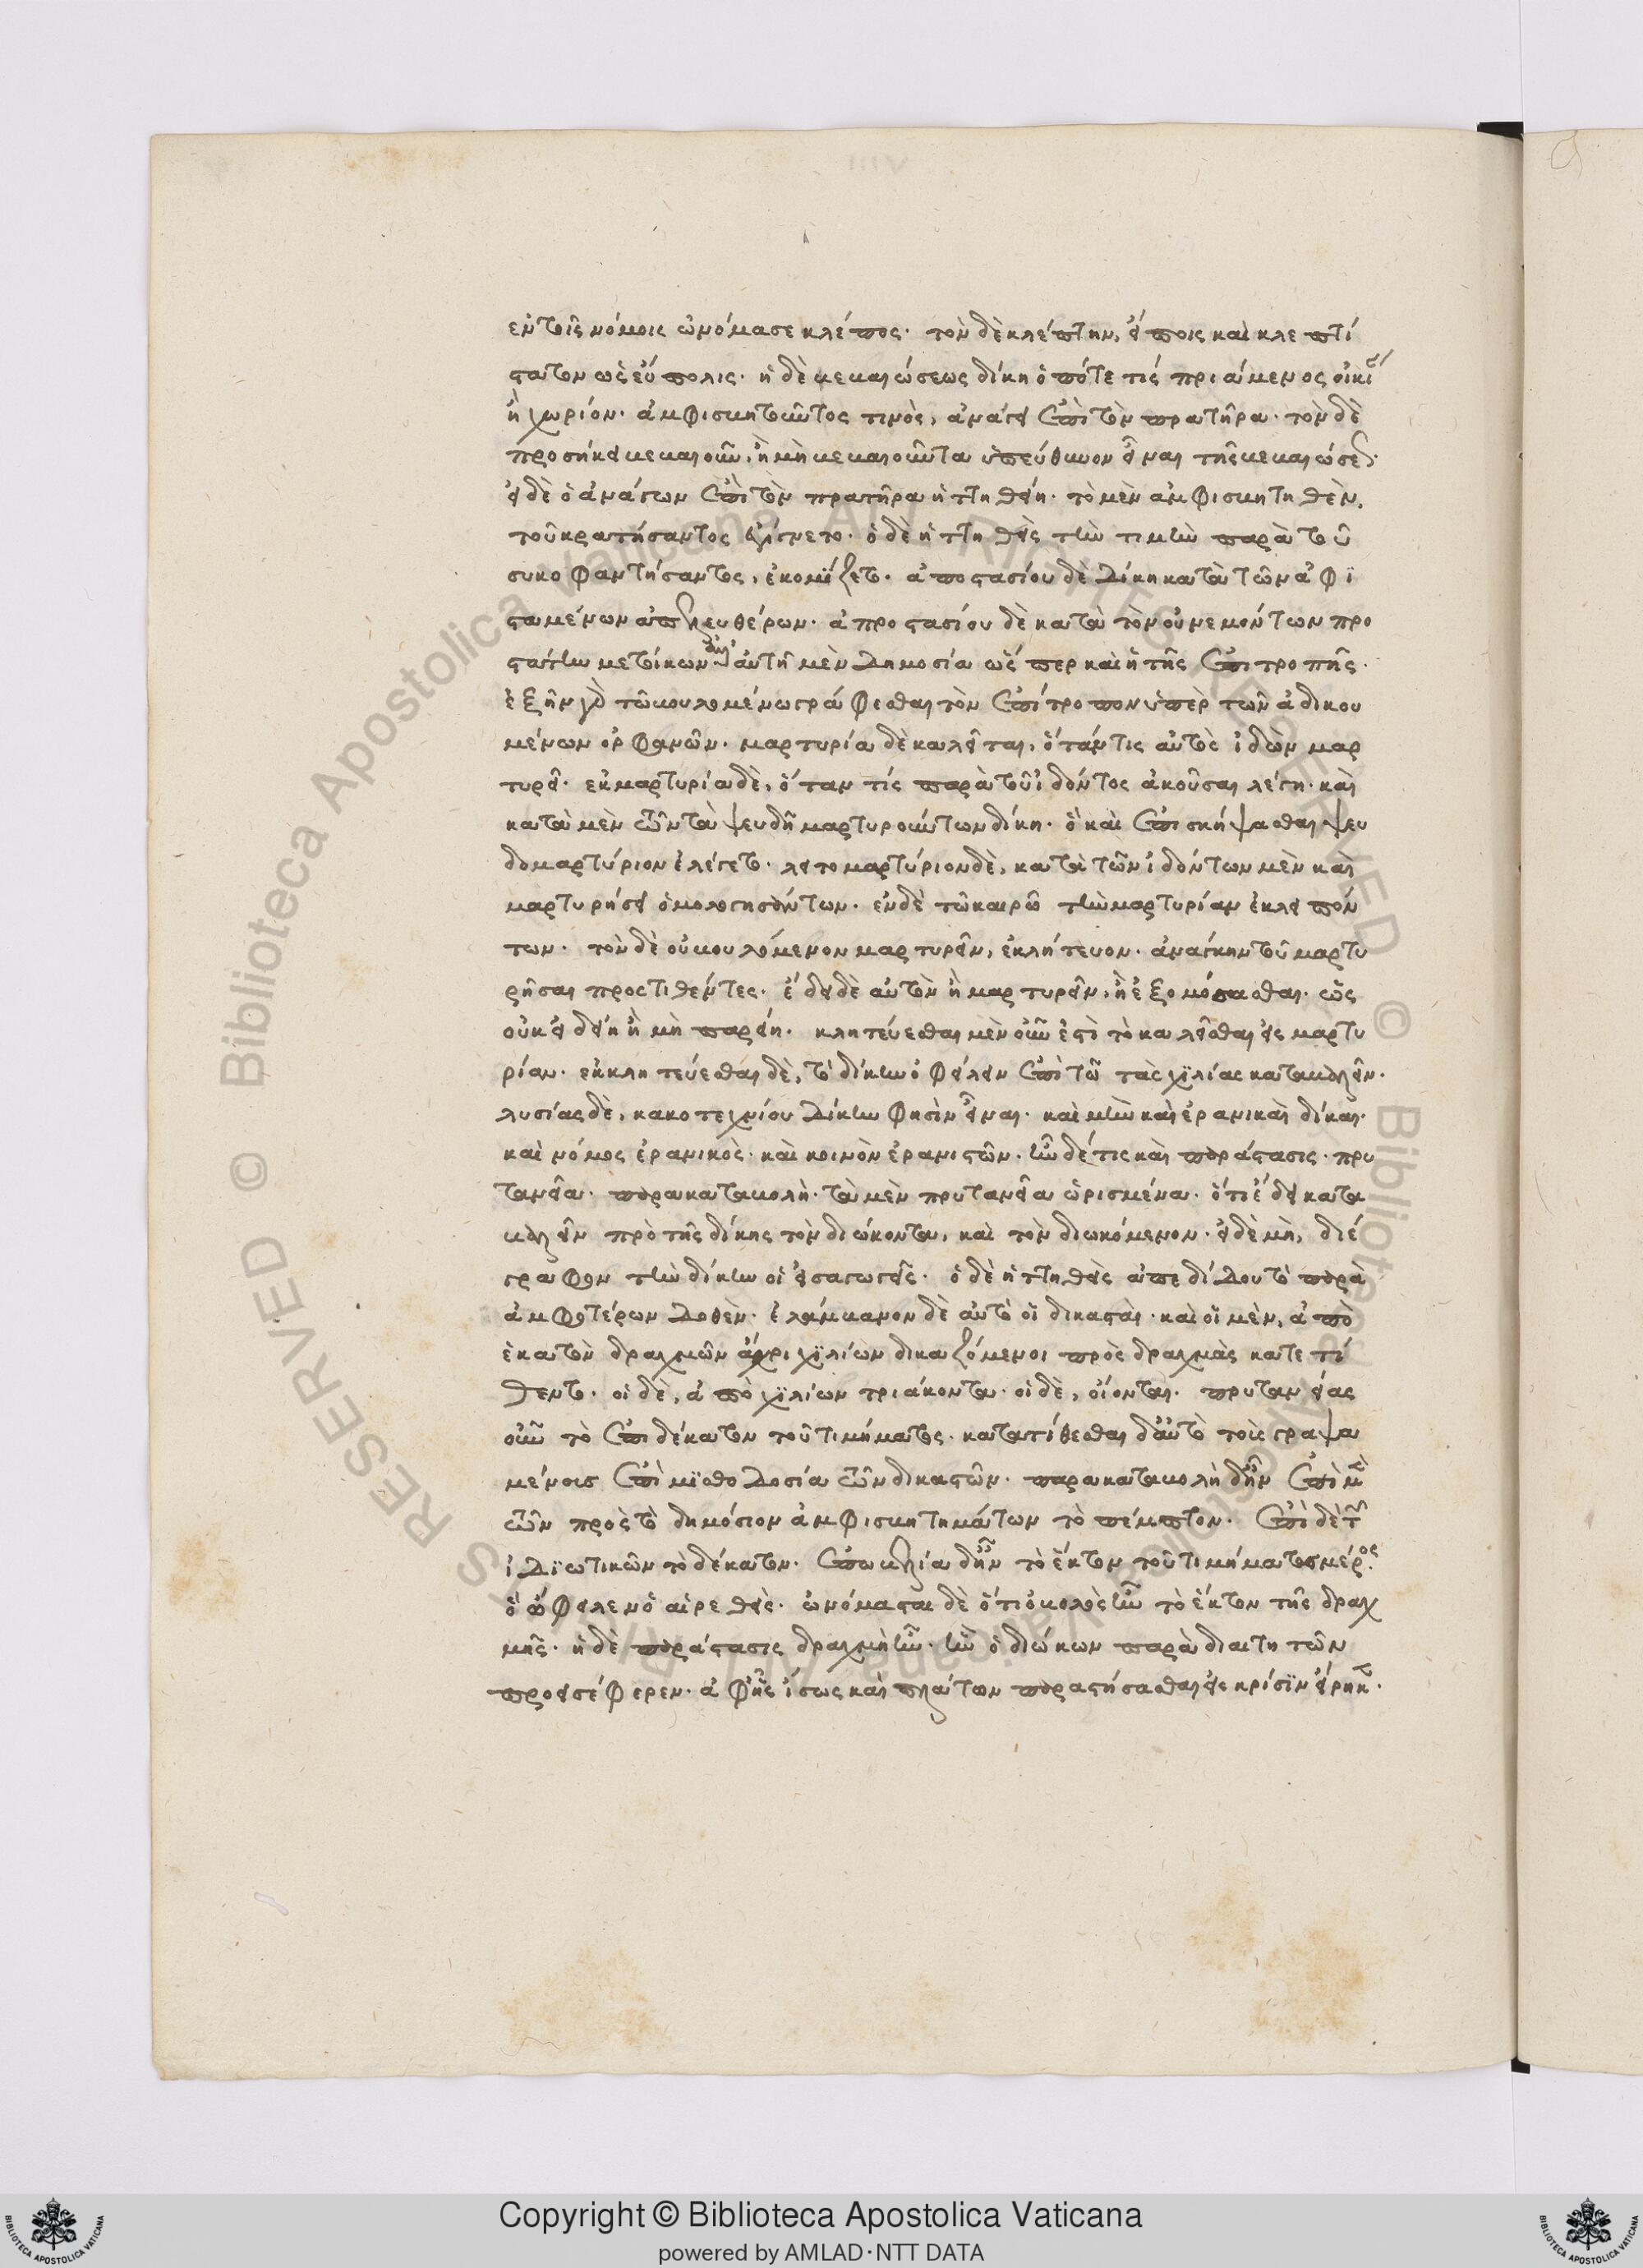 ἐν τοῖς νόμοις ὠνόμασε κλέπος· τὸν δὲ κλέπτην, εἴποις καὶ κλεπτί
στατον ὡς εὔπολις· ἡ δὲ βεβαιώσεως δίκη ὁπότε τίς πριάμενος οἰκί
ἢ χωρίον· ἀμφισβητοῦντος τινὸς, ἀνάγει ἐπὶ τὸν πρατῆρα· τὸν δὲ
προσήκει βεβαιοῦν, ἢ μὴ βεβαιοῦντα ὑπεύθυνον εἶναι τῆς βεβαιώσεως·
εἰ δὲ ὁ ἀνάγων ἐπὶ τὸν πρατῆρα ἡττηθείη· τὸ μὲν ἀμφισβητηθὲν,
τοῦ κρατήσαντος ἐγίγνετο· ὁ δὲ ἡττηθεὶς τὴν τιμὴν παρὰ τοῦ
συκοφαντήσαντος, ἐκομίζετο· ἀποστασίου δὲ δίκη κατὰ τῶν ἀφϊ
σταμένων ἀπελευθέρων· ἀπροστασίου δὲ κατὰ τὸν οὐ νεμόντων προ
στάτην μετοίκων· ἀλλ' αὐτὴ μὲν δημοσία ὥσπερ καὶ ἡ τῆς ἐπιτροπῆς·
ἐξῆν γὰρ τῷ βουλομένω γράφεσθαι τὸν ἐπίτροπον ὑπὲρ τῶν ἀδικου
μένων ὀρφανῶν· μαρτυρία δὲ καλεῖται, ὅτάν τις αὐτὸς ἰδὼν μαρ
τυρεῖ· ἐκμαρτυρία δὲ, ὅταν τίς παρὰ τοῦ ἰδόντος ἀκοῦσαι λέγη· καὶ
κατὰ μὲν τῶν τὰ ψευδῆ μαρτυρούντων δίκη· ὃ καὶ ἐπισκήψασθαι ψευ
δομαρτύριον ἐλέγετο· λειπομαρτύριον δὲ, κατὰ τῶν ἰδόντων μὲν καὶ
μαρτυρήσειν ὁμολογησάντων· ἐν δὲ τῷ καιρῷ τὴν μαρτυρίαν ἐκλειπόν
των· τὸν δὲ οὐ βουλόμενον μαρτυρεῖν, ἐκλήτευον· ἀνάγκην τοῦ μαρτυ
ρῆσαι προστιθέντες· ἔδει δὲ αὐτὸν ἢ μαρτυρεῖν, ἢ ἐξομόσασθαι· ὡς
οὐκ εἰδείη ἢ μὴ παρείη· κλητεύεσθαι μὲν οὖν ἐστὶ τὸ καλεῖσθαι εἰς μαρτυ
ρίαν· ἐκκλητεύεσθαι δὲ, τὸ δίκην ὀφείλειν ἐπὶ τῷ τὰς χιλίας καταβαλεῖν·
λυσίας δὲ, κακοτεχνίου δίκην φησὶν εἶναι· καὶ μὴν καὶ ἐρανικαὶ δίκαι·
καὶ νόμος ἐρανικὸς· καὶ κοινὸν ἐρανιστῶν· ἦν δέ τις καὶ παράστασις· πρυ
τανεῖα· παρακαταβολὴ· τὰ μὲν πρυτανεῖα ὡρισμένα· ὅτι ἔδει κατα
βαλεῖν πρὸ τῆς δίκης τὸν διώκοντα, καὶ τὸν διωκόμενον· εἰ δὲ μὴ, διέ
γραφον τὴν δίκην οἱ εἰσαγωγεῖς· ὁ δὲ ἡττηθεὶς ἀπεδίδου τὸ παρὰ
ἀμφοτέρων δοθὲν· ἐλάμβανον δὲ αὐτὸ οἱ δικασταὶ· καὶ οἱ μὲν, ἀπὸ
ἑκατὸν δραχμῶν ἄχρι χιλίων δικαζόμενοι πρὸς δραχμὰς κατετί
θεντο· οἱ δὲ, ἀπὸ χιλίων τριάκοντα· οἱ δὲ, οἴονται· πρυτανείας
οὖν τὸ ἐπιδέκατον τοῦ τιμήματος· κατατίθεσθαι δ' αὐτὸ τοῖς γραψα
μένοισ ἐπὶ μισθοδοσία τῶν δικαστῶν· παρακαταβολὴ δ' ἦν ἐπὶ μὲν
τῶν πρὸς τὸ δημόσιον ἀμφισβητημάτων τὸ πέμπτον· ἐπὶ δὲ τῶν
ἰδϊωτικῶν τὸ δέκατον· ἐπωβελία δ' ἦν τὸ ἕκτον τοῦ τιμήματος μέρος
ὃ ὤφειλεν ὁ αἱρεθεὶς· ὠνόμασται δὲ ὅτι ὀβολὸς ἦν τὸ ἕκτον τῆς δραχ
μῆς· ἡ δὲ παράστασις δραχμὴ ἦν· ἣν ὁ διώκων παρὰ διαιτητῶν
προσέφερεν· ἀφ' ἧς ἴσως καὶ πλάτων παραστήσασθαι εἰς κρίσιν εἴρηκ·